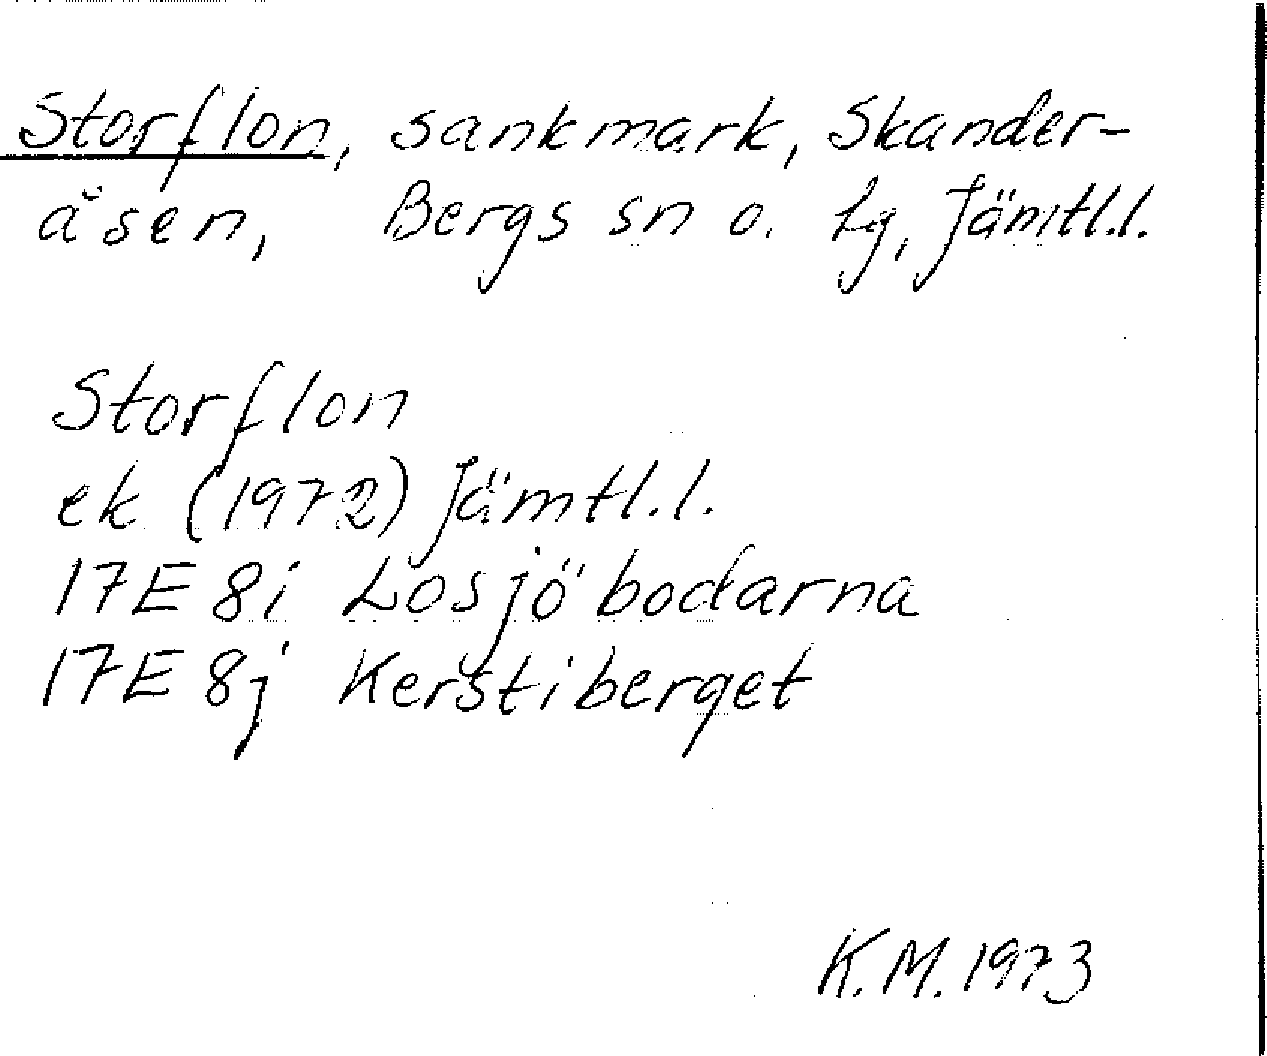 Storflon, sankmark, Skander-
åsen, Bergs sn o. tg, Jämtl.l.
Storflon
ek (1972) Jämtl.l.
17E 8i Losjöbodarna
17E 8j Kerstiberget
K.M. 1973